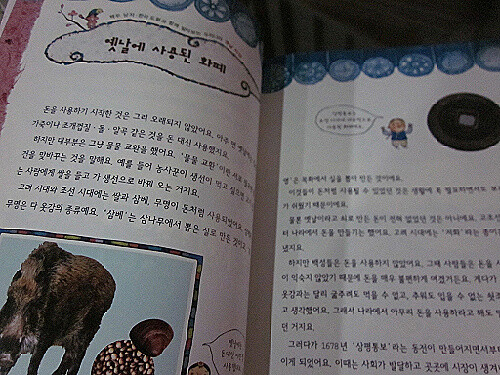 옛날에 사용된 화폐
돈을 사용하기 시작한 것은 그리 오래되지 않았어요. 아주 먼 옛날에는
가죽이나 조개껍질·돌·알곡 같은 것을 돈 대신 사용했지요.
하지만 대부분은 그냥 물물 교환을 했어요. '물물 교환'이란 서로
건을 맞바꾸는 것을 말해요. 예를 들어 농사꾼이 생선이 먹고 싶으면
는 사람에게 쌀을 들고 가 생선으로 바꿔 오는 거지요.
고려 시대와 조선 시대에는 쌀과 삼베, 무명이 돈처럼 사용되었어요.
무명은 다 옷감의 종류예요. '삼베'는 삼나무에서 뽑은 실로 만든 것이고
상평통보는
명'은 목화에서 실을 뽑아 만든 것이에요.
이것들이 돈처럼 사용될 수 있었던 것은 생활에 꼭 필요하면서도
가 쉬웠기 때문이에요.
물론 옛날이라고 쇠로 만든 돈이 전혀 없었던 것은 아니에요. 고조
터 나라에서 돈을 만들기는 했어요. 고려 시대에는 '저화'라는 종이
냈지요.
하지만 백성들은 돈을 사용하지 않았어요. 그때 사람들은 돈을
이 익숙지 않았기 때문에 돈을 매우 불편하게 여겼거든요. 게다가
옷감과는 달리 굶주려도 먹을 수 없고, 추워도 입을 수 없는
고 생각했어요. 그래서 나라에서 아무리 돈을 사용하라고 해도
던 거지요.
그러다가 1678년 '상평통보'라는 동전이 만들어지면서부터
이게 되었어요. 이때는 사회가 발달하고 곳곳에 시장이 생겨